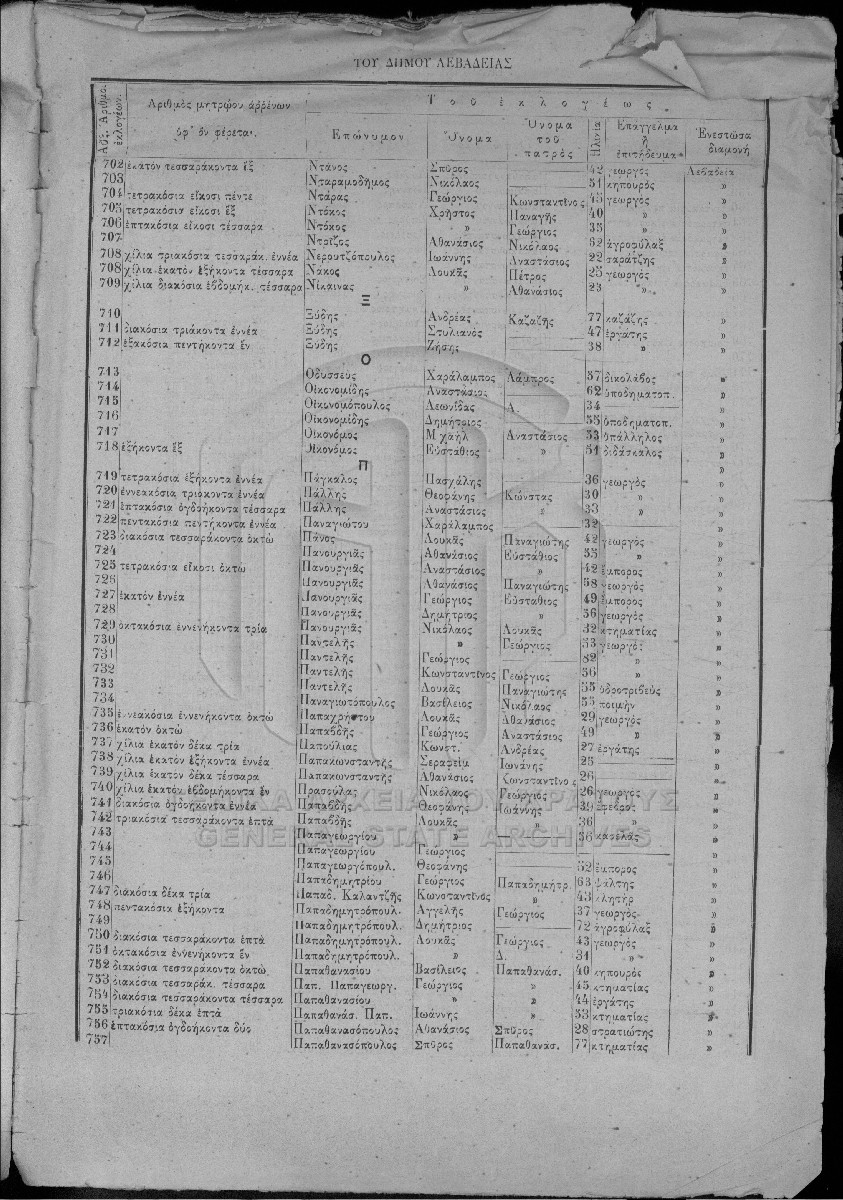 ΤΟΥ ΔΗΜΟΥ ΛΕΒΑΔΕΙΑΣ
Αὔξ. Ἀριθμο. ἐκλογέων. Ἀριθμὸς μητρῴου ἀρρένων ὑφ' ὃν φέρεται. Τοῦ ἐκλογέως
Ἐπώνυμον Ὄνομα Ὄνομα τοῦ πατρὸς Ἡλικία Ἐπάγγελμα ἢ ἐπιτήδευμα Ἐνεστῶσα διαμονή
702 ἑκατὸν τεσσαράκοντα ἓξ Ντάνος Σπῦρος 42 γεωργὸς Λεβαδεία
703 Νταραμοδῆμος Νικόλαος 51 κηπουρός »
704 τετρακόσια εἴκοσι πέντε Ντάρας Γεώργιος Κωνσταντῖνος 45 γεωργὸς »
705 τετρακόσια εἴκοσι ἓξ Ντόκος Χρῆστος Παναγῆς 40 » »
706 ἑπτακόσια εἴκοσι τέσσαρα Ντόκος » Γεώργιος 35 » »
707 Ντρίζος Ἀθανάσιος Νικόλαος 62 ἀγροφύλαξ »
708 χίλια τριακόσια τεσσαράκ. ἐννέα Νερουτζόπουλος Ἰωάννης Ἀναστάσιος 22 σαράτζης »
708 χίλια ἑκατὸν ἑξήκοντα τέσσαρα Νάκος Λουκᾶς Πέτρος 25 γεωργὸς »
709 χίλια διακόσια ἑβδομήκ. τέσσαρα Νίκαινας » Ἀθανάσιος 23 » »
Ξ
710 Ξύδης Ἀνδρέας Καζαζῆς 77 καζάζης »
711 διακόσια τριάκοντα ἐννέα Ξύδης Στυλιανὸς 47 ἐργάτης »
712 ἑξακόσια πεντήκοντα ἓν Ξύδης Ζήσης 38 » »
Ο
713 Ὀδυσσεὺς Χαράλαμπος Λάμπρος 37 »
714 Οἰκονομίδης Ἀναστάσιος 62 ὑποδηματοπ. »
715 Οἰκονομόπουλος Λεωνίδας Α. 34 »
716 Οἰκονομίδης Δημήτριος 55 ὑποδηματοπ. »
717 Οἰκονόμος Μιχαὴλ Ἀναστάσιος 53 ὑπάλληλος »
718 ἑξήκοντα ἓξ Οἰκονόμος Εὐστάθιος » 51 διδάσκαλος »
Π
719 τετρακόσια ἑξήκοντα ἐννέα Πάγκαλος Πασχάλης 36 γεωργὸς »
720 ἐννεακόσια τριάκοντα ἐννέα Πάλλης Θεοφάνης Κώνστας 30 » »
721 ἑπτακόσια ὀγδοήκοντα τέσσαρα Πάλλης Ἀναστάσιος » 33 » »
722 πεντακόσια πεντήκοντα ἐννέα Παναγιώτου Χαράλαμπος 32 »
723 διακόσια τεσσαράκοντα ὀκτὼ Πάνος Λουκᾶς Παναγιώτης 42 γεωργὸς »
724 Πανουργιᾶς Ἀθανάσιος Εὐστάθιος 55 » »
725 τετρακόσια εἴκοσι ὀκτὼ Πανουργιᾶς Ἀναστάσιος » 42 ἔμπορος »
726 Πανουργιᾶς Ἀθανάσιος Παναγιώτης 58 γεωργὸς »
727 ἑκατὸν ἐννέα Πανουργιᾶς Γεώργιος Εὐστάθιος 49 ἔμπορος »
728 Πανουργιᾶς Δημήτριος » 36 γεωργὸς »
729 ὀκτακόσια ἐννενήκοντα τρία Πανουργιᾶς Νικόλαος Λουκᾶς 32 κτηματίας »
730 Παντελῆς » Γεώργιος 53 γεωργὸς »
731 Παντελῆς Γεώργιος 82 » »
732 Παντελῆς Κωνσταντῖνος Γεώργιος 56 » »
733 Παντελῆς Λουκᾶς Παναγιώτης 55 ὑδροτριβεὺς »
734 Παναγιωτόπουλος Βασίλειος Νικόλαος 55 ποιμὴν »
735 ἐννεακόσια ἐννενήκοντα ὀκτὼ Παπαχρήστου Λουκᾶς Ἀθανάσιος 29 γεωργὸς »
736 ἑκατὸν ὀκτὼ Παπαβδῆς Γεώργιος Ἀναστάσιος 49 » »
737 χίλια ἑκατὸν δέκα τρία Παπούλιας Κωνστ. Ἀνδρέας 27 ἐργάτης »
738 χίλια ἑκατὸν ἑξήκοντα ἐννέα Παπακωνσταντῆς Σεραφεὶμ Ἰωάνης 25 »
739 χίλια ἑκατὸν δέκα τέσσαρα Παπακωνσταντῆς Ἀθανάσιος Κωνσταντῖνος 26 »
740 χίλια ἑκατὸν ἑβδομήκοντα ἓν Πρασούλας Νικόλαος Γεώργιος 26 γεωργὸς »
741 διακόσια ὀγδοήκοντα ἐννέα Παπαβδῆς Θεοφάνης Ἰωάννης 39 ἔφεδρος »
742 τριακόσια τεσσαράκοντα ἑπτὰ Παπαβδῆς Λουκᾶς » 36 » »
743 Παπαγεωργίου » 36 καφελᾶς »
744 Παπαγεωργίου Γεώργιος »
745 Παπαγεωργόπουλ. Θεοφάνης 52 ἔμπορος »
746 Παπαδημητρίου Γεώργιος Παπαδημήτρ. 63 ψάλτης »
747 διακόσια δέκα τρία Παπαδ. Καλαντζῆς Κωνσταντῖνος » 43 κλητὴρ »
748 πεντακόσια ἑξήκοντα Παπαδημητρόπουλ. Ἀγγελῆς Γεώργιος 37 γεωργὸς »
749 Παπαδημητρόπουλ. Δημήτριος 72 ἀγροφύλαξ »
750 διακόσια τεσσαράκοντα ἑπτὰ Παπαδημητρόπουλ. Λουκᾶς Γεώργιος 43 γεωργὸς »
751 ὀκτακόσια ἐννενήκοντα ἓν Παπαδημητρόπουλ. » Δ. 31 » »
752 διακόσια τεσσαράκοντα ὀκτὼ Παπαθανασίου Βασίλειος Παπαθανάσ. 40 κηπουρὸς »
753 διακόσια τεσσαράκ. τέσσαρα Παπ. Παπαγεωργ. Γεώργιος » 45 κτηματίας »
754 διακόσια τεσσαράκοντα τέσσαρα Παπαθανασίου » » 44 ἐργάτης »
755 τριακόσια δέκα ἑπτὰ Παπαθανάσ. Παπ. Ἰωάννης » 53 κτηματίας »
756 ἑπτακόσια ὀγδοήκοντα δύο Παπαθανασόπουλος Ἀθανάσιος Σπῦρος 28 στρατιώτης »
757 Παπαθανασόπουλος Σπῦρος Παπαθανάσ. 77 κτηματίας »